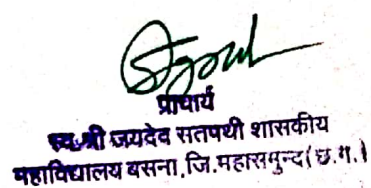 प्राचार्य
स्व. श्री जयदेव सतपथी शासकीय
महाविद्यालय बसना, जि.महासमुन्द (छ.ग.)